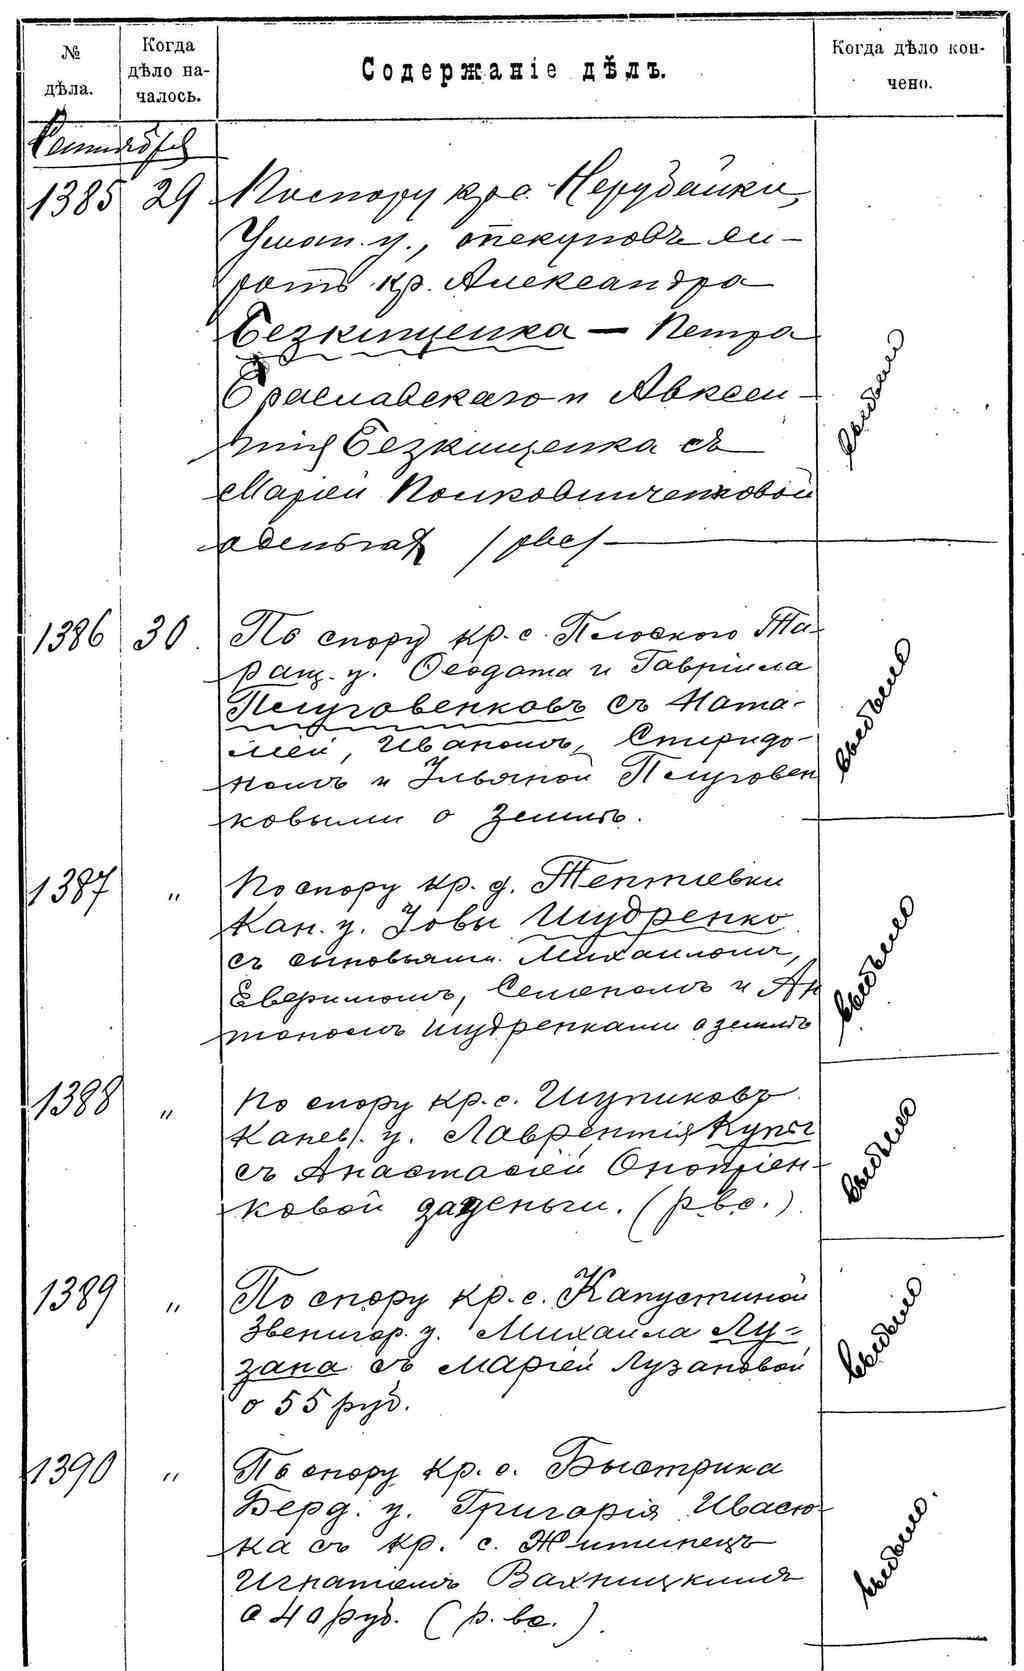 № дѣла.
Когда дѣло на-
чалось.
Содержаніе дѣлъ.
Когда дѣло кон-
чено.
Сентября
1385 29 По спору кр. с. Нерубайки,
Уман. у., опекуновъ си-
ротъ кр. Александра
Безкищенка — Петра
Браславскаго и Авксен-
тія Безкищенка съ
Маріей Полковниченковой
о деньгах /рвс/
выбыло
1386 30 По спору кр. с. Плоского Та-
ращ. у. Феодота и Гавріила
Плуговенковъ съ Ната-
ліей, Иваномъ, Спиридо-
номъ и Ульяной Плуговен
ковыми о землѣ.
выбыло
1387 " По спору кр. д. Тептіевки
Кан. у. Іовы Шудренко
съ сыновьями Михаиломъ,
Евфимомъ, Семеномъ и Ан
тономъ Шудренками о землѣ
выбыло
1388 " По спору кр. с. Шупиковъ
Канев. у. Лаврентія Купы
съ Анастасіей Оноприен-
ковой за деньги. (рвс.)
выбыло
1389 " По спору кр. с. Капустиной
Звенигор. у. Михаила Лу-
зана съ Маріей Лузановой
о 55 руб.
выбыло
1390 " По спору кр. с. Быстрика
Берд. у. Григорія Ивасю-
ка съ кр. с. Житинецъ
Игнатіемъ Вахницкимъ
о 40 руб. (р. вс.)
выбыло.